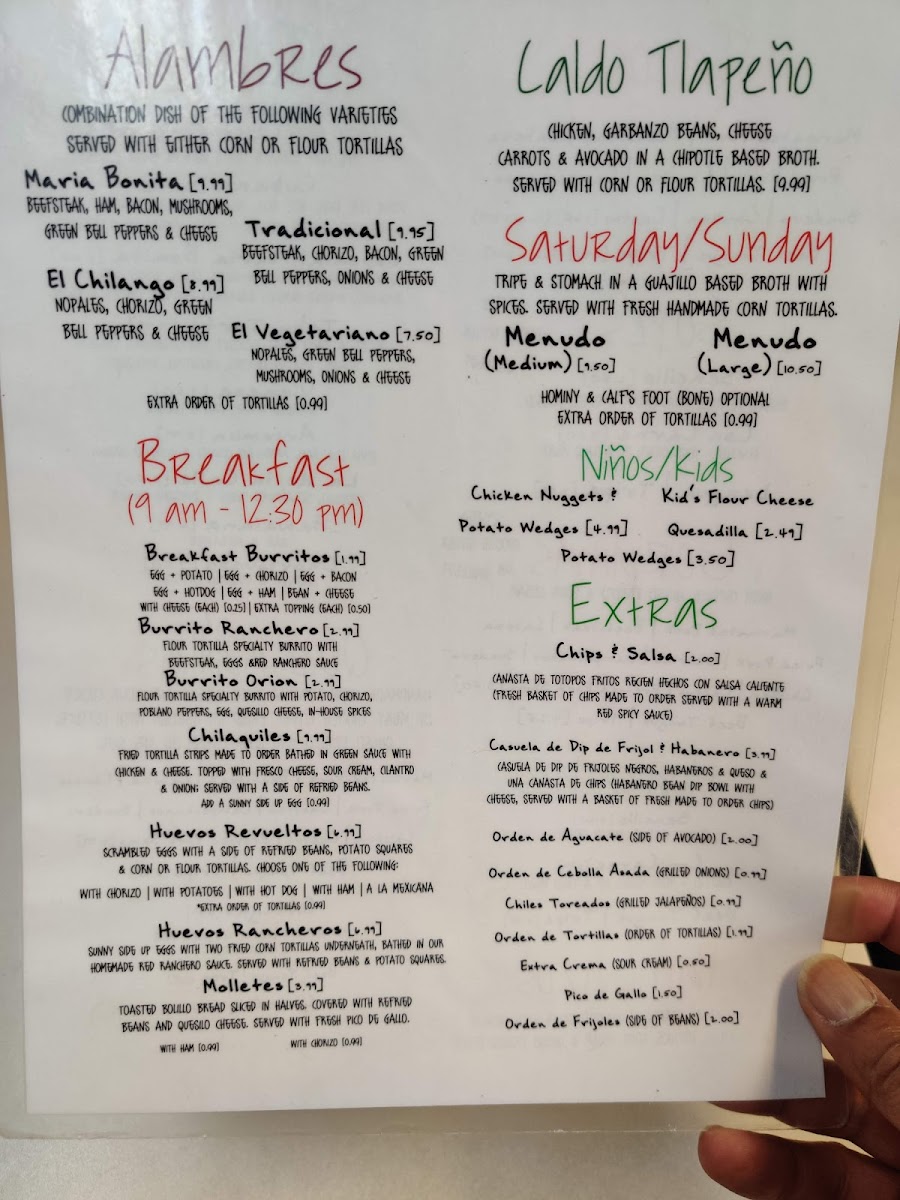 Alambres
COMBINATION DISH OF THE FOLLOWING VARIETIES
SERVED WITH EITHER CORN OR FLOUR TORTILLAS
Maria Bonita [9.99]
BEEFSTEAK, HAM, BACON, MUSHROOMS,
GREEN BELL PEPPERS & CHEESE
Tradicional [9.95]
BEEFSTEAK, CHORIZO, BACON, GREEN
BELL PEPPERS, ONIONS & CHEESE
El Chilango [8.99]
NOPALES, CHORIZO, GREEN
BELL PEPPERS & CHEESE
El Vegetariano [7.50]
NOPALES, GREEN BELL PEPPERS,
MUSHROOMS, ONIONS & CHEESE
EXTRA ORDER OF TORTILLAS [0.99]
Breakfast
(9 am - 12:30 pm)
Breakfast Burritos [1.99]
EGG + POTATO | EGG + CHORIZO | EGG + BACON
EGG + HOTDOG | EGG + HAM | BEAN + CHEESE
WITH CHEESE (EACH) [0.25] | EXTRA TOPPING (EACH) [0.50]
Burrito Ranchero [2.99]
FLOUR TORTILLA SPECIALTY BURRITO WITH
BEEFSTEAK, EGGS &RED RANCHERO SAUCE
Burrito Orion [2.99]
FLOUR TORTILLA SPECIALTY BURRITO WITH POTATO, CHORIZO,
POBLANO PEPPERS, EGG, QUESILLO CHEESE, IN-HOUSE SPICES
Chilaquiles [9.99]
FRIED TORTILLA STRIPS MADE TO ORDER BATHED IN GREEN SAUCE WITH
CHICKEN & CHEESE. TOPPED WITH FRESCO CHEESE, SOUR CREAM, CILANTRO
& ONION; SERVED WITH A SIDE OF REFRIED BEANS.
ADD A SUNNY SIDE UP EGG [0.99]
Huevos Revueltos [6.99]
SCRAMBLED EGGS WITH A SIDE OF REFRIED BEANS, POTATO SQUARES
& CORN OR FLOUR TORTILLAS. CHOOSE ONE OF THE FOLLOWING:
WITH CHORIZO | WITH POTATOES | WITH HOT DOG | WITH HAM | A LA MEXICANA
*EXTRA ORDER OF TORTILLAS [0.99]
Huevos Rancheros [6.99]
SUNNY SIDE UP EGGS WITH TWO FRIED CORN TORTILLAS UNDERNEATH, BATHED IN OUR
HOMEMADE RED RANCHERO SAUCE. SERVED WITH REFRIED BEANS & POTATO SQUARES.
Molletes [3.99]
TOASTED BOLILLO BREAD SLICED IN HALVES. COVERED WITH REFRIED
BEANS AND QUESILO CHEESE. SERVED WITH FRESH PICO DE GALLO.
WITH HAM [0.99] WITH CHORIZO [0.99]
Caldo Tlapeño
CHICKEN, GARBANZO BEANS, CHEESE
CARROTS & AVOCADO IN A CHIPOTLE BASED BROTH.
SERVED WITH CORN OR FLOUR TORTILLAS. [9.99]
Saturday/Sunday
TRIPE & STOMACH IN A GUAJILLO BASED BROTH WITH
SPICES. SERVED WITH FRESH HANDMADE CORN TORTILLAS.
Menudo
(Medium) [9.50]
Menudo
(Large) [10.50]
HOMINY & CALF'S FOOT (BONE) OPTIONAL
EXTRA ORDER OF TORTILLAS [0.99]
Niños/Kids
Chicken Nuggets &
Potato Wedges [4.99]
Kid's Flour Cheese
Quesadilla [2.49]
Potato Wedges [3.50]
Extras
Chips & Salsa [2.00]
CANASTA DE TOTOPOS FRITOS RECIEN HECHOS CON SALSA CALIENTE
(FRESH BASKET OF CHIPS MADE TO ORDER SERVED WITH A WARM
RED SPICY SAUCE)
Casuela de Dip de Frijol & Habanero [3.99]
CASUELA DE DIP DE FRIJOLES NEGROS, HABANEROS & QUESO &
UNA CANASTA DE CHIPS (HABANERO BEAN DIP BOWL WITH
CHEESE, SERVED WITH A BASKET OF FRESH MADE TO ORDER CHIPS)
Orden de Aguacate (SIDE OF AVOCADO) [2.00]
Orden de Cebolla Asada (GRILLED ONIONS) [0.99]
Chiles Toreados (GRILLED JALAPEÑOS) [0.99]
Orden de Tortillas (ORDER OF TORTILLAS) [1.99]
Extra Crema (SOUR CREAM) [0.50]
Pico de Gallo [1.50]
Orden de Frijoles (SIDE OF BEANS) [2.00]